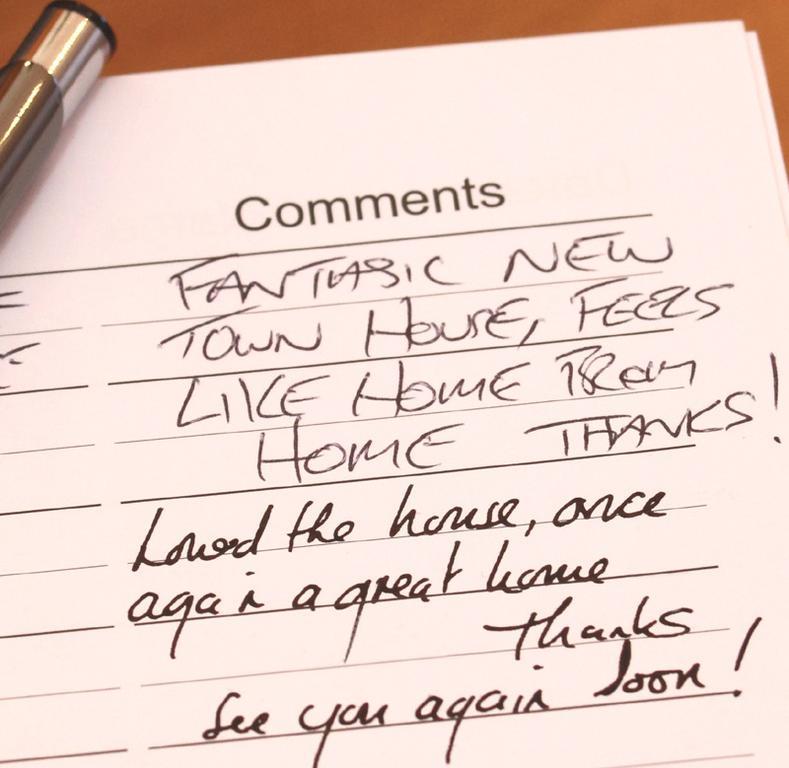 Comments
FANTASIC NEW
TOWN HOUSE, FEELS
LIKE HOME FROM
HOME THANKS!
Loved the house, once
again a great home
Thanks
See you again soon!